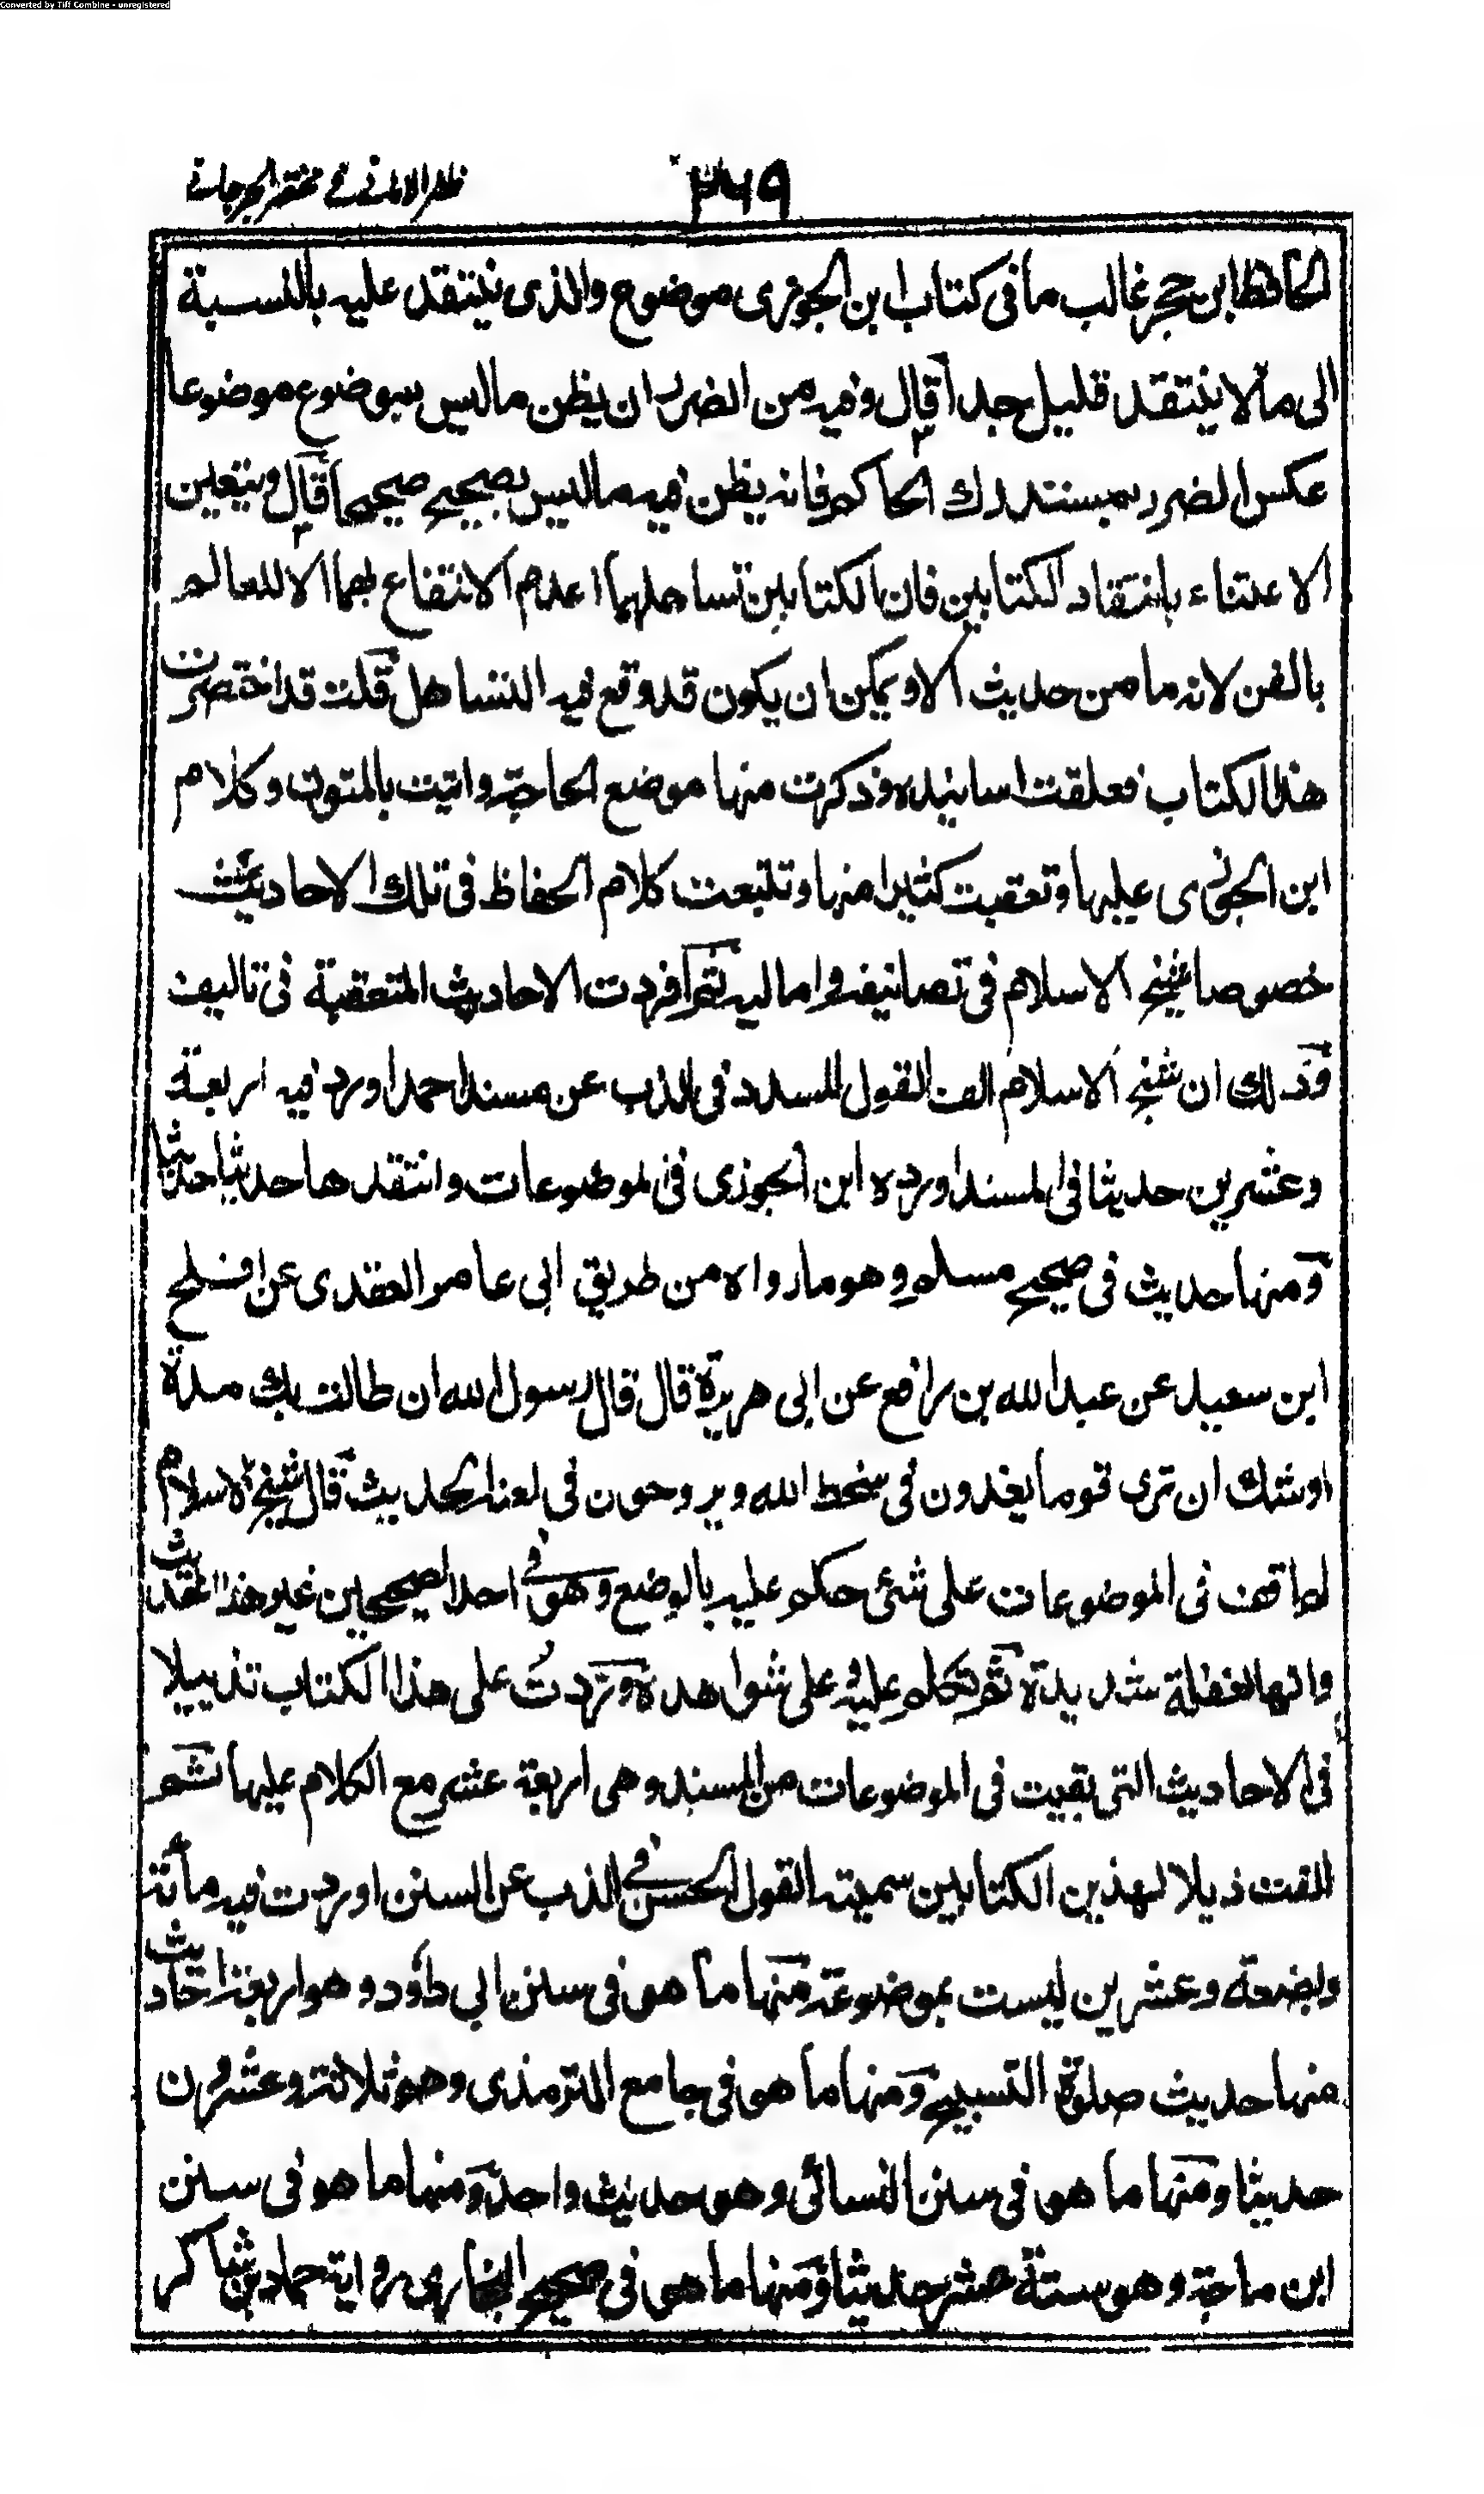 Converted by Tiff Combine - unregistered
٣٦٩
ظفر الامانى فى مختصر الجرجانى
الحافظ ابن حجر غالب ما فى كتاب ابن الجوزى موضوع والذى ينتقد عليه بالنسبة
الى ما لا ينتقد قليل جدا قال وفيه من الضرر ان يظن ما ليس بموضوع موضوعا
عكس الضرر بمستدرك الحاكم فانه يظن فيه ما ليس بصحيح صحيحا قال ويتعين
الاعتناء بانتقاد الكتابين فان الكتابين تساهلهما اعدم الانتفاع بهما الا للعالم
بالفن لانه ما من حديث الا ويمكن ان يكون قد وقع فيه التساهل قلت قد اختصرت
هذا الكتاب فعلقت اسانيده وذكرت منها موضع الحاجة واتيت بالمتون وكلام
ابن الجوزى عليها وتعقبت كثيرا منها وتتبعت كلام الحفاظ فى تلك الاحاديث
خصوصا شيخ الاسلام فى تصانيفه واماليه ثم افردت الاحاديث المتعقبة فى تاليف
وذلك ان شيخ الاسلام الف القول المسدد فى الذب عن مسند احمد اورد فيه اربعة
وعشرين حديثا فى المسند اورده ابن الجوزى فى الموضوعات وانتقدها حديثا حديثا
ومنها حديث فى صحيح مسلم وهو ما رواه من طريق ابى عامر العقدى عن افلح
ابن سعيد عن عبد الله بن رافع عن ابى هريرة قال قال رسول الله ان طالت بك مدة
اوشك ان ترى قوما يغدون فى سخط الله ويروحون فى لعنته الحديث قال شيخ الاسلام
لم اقف فى الموضوعات على شئ حكم عليه بالوضع وهو فى احد الصحيحين غير هذا الحديث
وانها لغفلة شديدة ثم تكلم عليه على شواهده وزدت على هذا الكتاب تذييلا
فى الاحاديث التى بقيت فى الموضوعات من المسند وهى اربعة عشر مع الكلام عليها ثم
الفت ذيلا لهذين الكتابين سميته القول الحسن فى الذب عن السنن اوردت فيه مأئة
وبضعة وعشرين ليست بموضوعة منها ما هو فى سنن ابى داؤد وهو اربعة احاديث
منها حديث صلوة التسبيح ومنها ما هو فى جامع الترمذى وهو ثلاثة وعشرون
حديثا ومنها ما هو فى سنن النسائى وهو حديث واحد ومنها ما هو فى سنن
ابن ماجة وهو ستة عشر حديثا ومنها ما هو فى صحيح البخارى رواية حماد بن شاكر